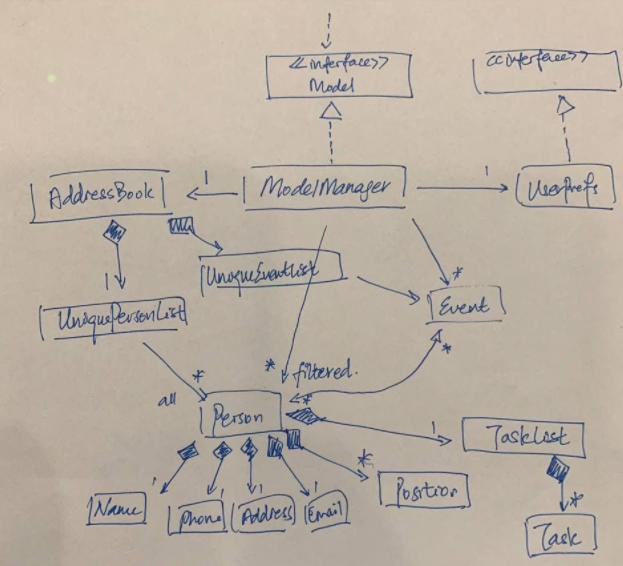 <<interface>>
Model
<<interface>>
AddressBook
1
ModelManager
1
UserPrefs
UniqueEventList
1
UniquePersonList
*
Event
*
*
filtered.
*
all
*
Person
1
TaskList
1
1
1
1
*
Name
Phone
Address
Email
Position
*
Task